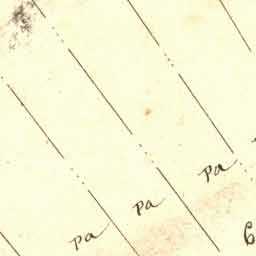 pa
pa
pa
6